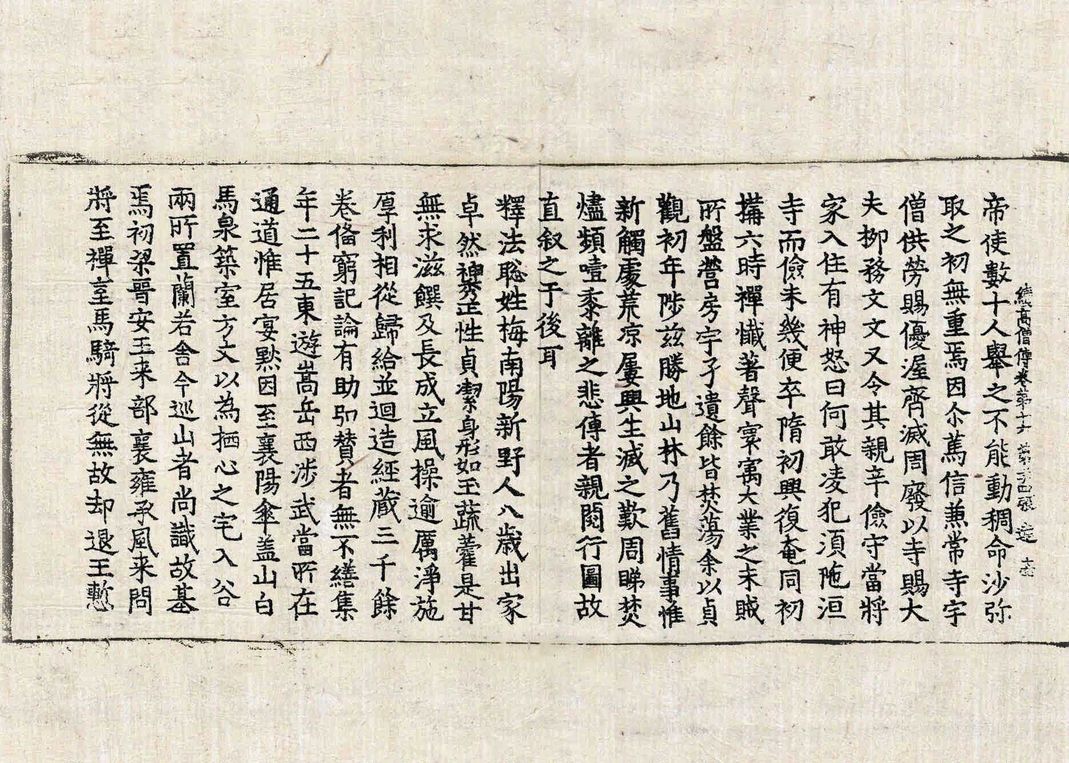 續高僧傳卷第十六 第二十四張 迳
帝使數十人舉之不能動稠命沙弥
取之初無重焉因尒萬信兼常寺宇
僧供勞賜優渥齊滅周廢以寺賜大
夫柳務文文又令其親辛儉守當將
家入住有神怒曰何敢凌犯湏陁洹
寺而儉未幾便卒隋初興復奄同初
搆六時禪懴著聲寰㝢大業之末賊
所盤營房宇孑遺餘皆焚蕩余以貞
觀初年陟兹勝地山林乃舊情事惟
新觸處荒凉屢興生滅之歎周睇焚
燼頻噎黍離之悲傳者親閱行圖故
直叙之于後耳
釋法聡姓梅南陽新野人八歲出家
卓然神秀正性貞潔身形如玉蔬藿是甘
無求滋饌及長成立風操逾厲淨施
厚利相從歸給並迴造經藏三千餘
卷俻窮記論有助弘賛者無不繕集
年二十五東遊嵩岳西涉武當所在
通道惟居宴黙因至襄陽傘盖山白
馬泉築室方丈以為栖心之宅入谷
兩所置蘭若舍今巡山者尚識故基
焉初梁晉安王来部襄雍承風来問
將至禪室馬騎將從無故却退王慙